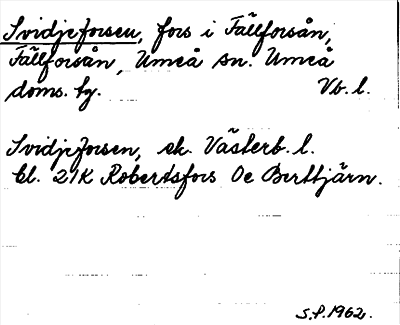 Svidjeforsen, fors i Fällforsån,
Fällforsån, Umeå sn. Umeå
doms. hg. Vb. l.
Svidjeforsen, ek. Västerb. l.
bl. 21K Robertsfors Oe Berttjärn.
S.P. 1962.